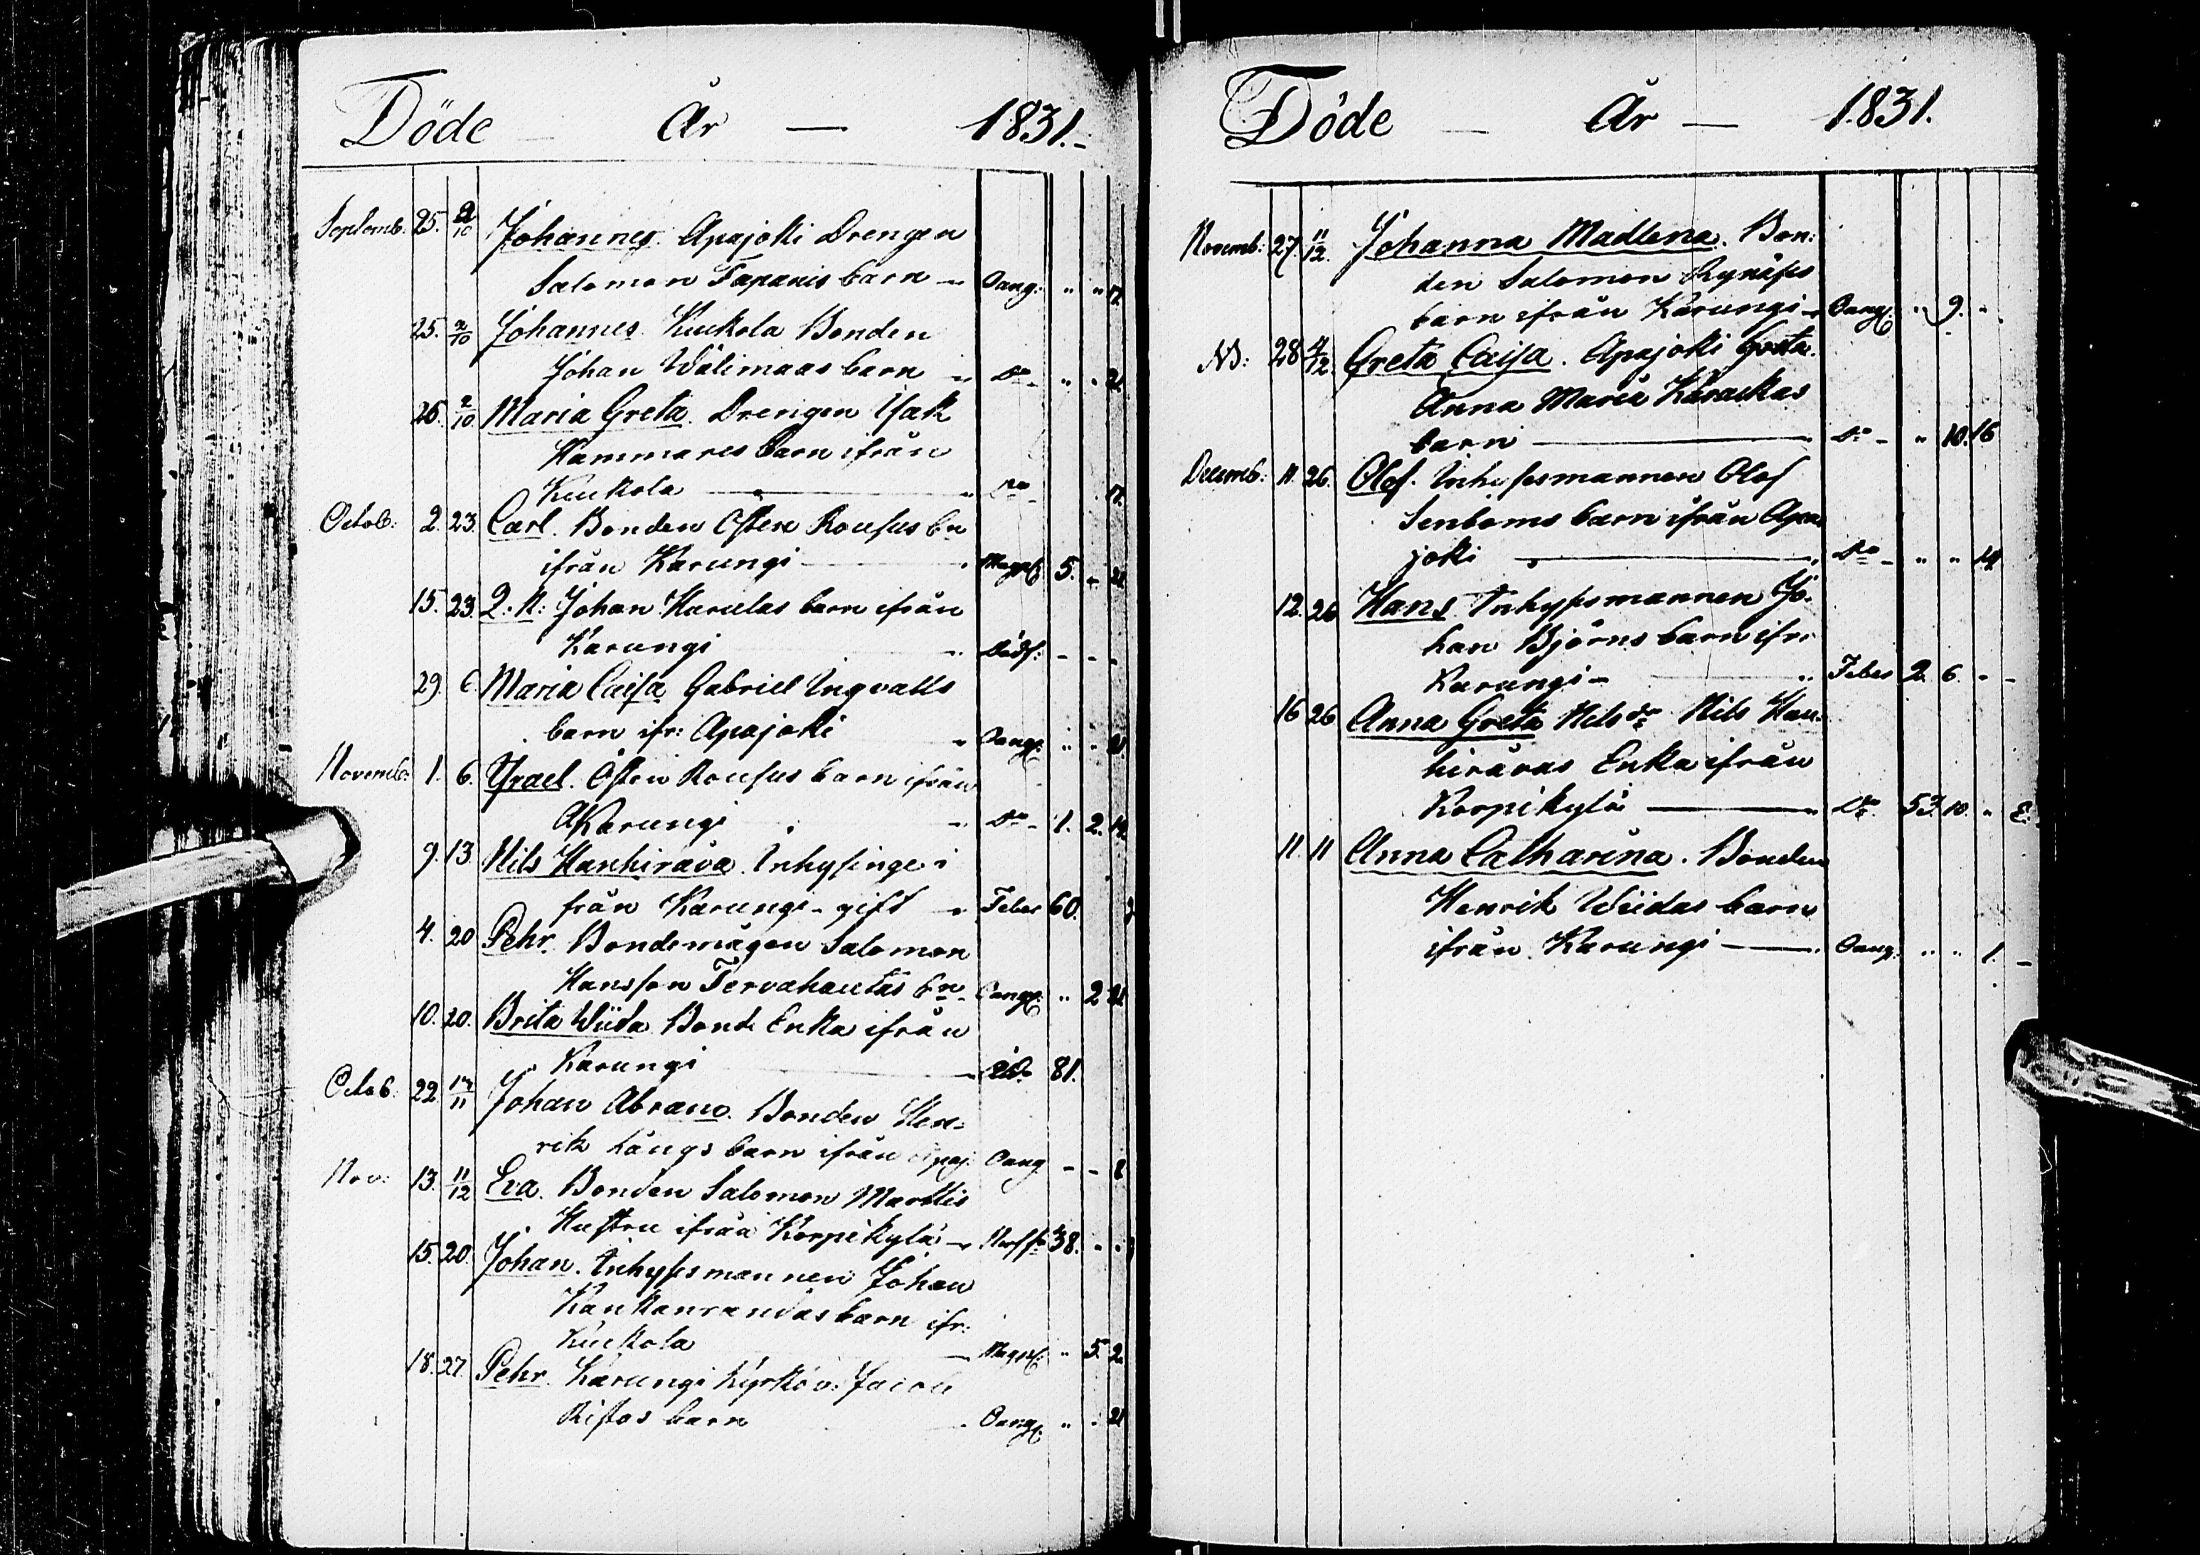 Döde — År — 1831.
Septemb: 25. 2/10 Johannes. Apajoki Drengen
Salomon Tapanis barn " Oang: " " 12.
25. 2/10 Johannes. Kuckola Bonden
Johan Wälimaas barn " Do " " 21.
26. 2/10 Maria Greta. Drengen Isak
Hammares barn ifrån
Kuckola — " Do 12.
Octob: 2. 23. Carl. Bonden Östen Roufus bn
ifrån Karungi — Magpl 5. - 21
15. 23. Q: N: Johan Karulas barn ifrån
Karungi " Dödf: - - -
29. 6 Maria Caisa Gabriel Ingvalls
barn ifr: Apajoki " Oang: " " 21
Novemb: 1. 6. Israel. Östen Roufus barn ifrån
Karungi " Do - 1. 2. 14.
9. 13. Nils Kauhirova. Inhysinge i
från Karungi - gift " Feber 60.
4. 20 Pehr. Bondemågen Salomon
Hansson Tervahautas bn Oang: " 2 21
10. 20. Brita Wiida. Bonde Enka ifrån
Karungi — Do 81.
Octob. 22 17/11 Johan Abram. Bonden Hen-
rik Längs barn ifrån Apaj: Oang - - 8
Nov: 13. 11/12 Eva. Bonden Salomon Marttis
Hustru ifrån Korpikylä " 38. - -
15. 20. Johan. Inhysesmannen Johan
Kaukanrandas barn ifr:
Kuckola — Magpl: " 5. 2.
18. 27. Pehr. Karungi Kyrkov: Jacob
Ristos barn - Oang: " - 21
Döde — År — 1831.
Novemb: 27. 11/12. Johanna Madlena. Bon:
den Salomon Rynäses
barn ifrån Karungi " Oang: " 9. "
NB: 28 4/12. Greta Caisa. Apajoki Greta
Anna Maria Karackas
barn — Do - " 10. 16
Decemb: 11. 26. Olof. Inhysesmannen Olof
Senboms barn ifrån Apa
joki — Do - " " 14
12. 26 Hans. Inhysesmannen Jo-
han Björns barn ifr:
Karungi — " Feber 2. 6. - -
16 26 Anna Greta Nilsdr Nils Kau-
hirovas Enka ifrån
Korpikylä — Do. 53. 10. " E:
11. 11 Anna Catharina. Bonden
Henrik Wiidas barn
ifrån Karungi — Oang: " " 1. -